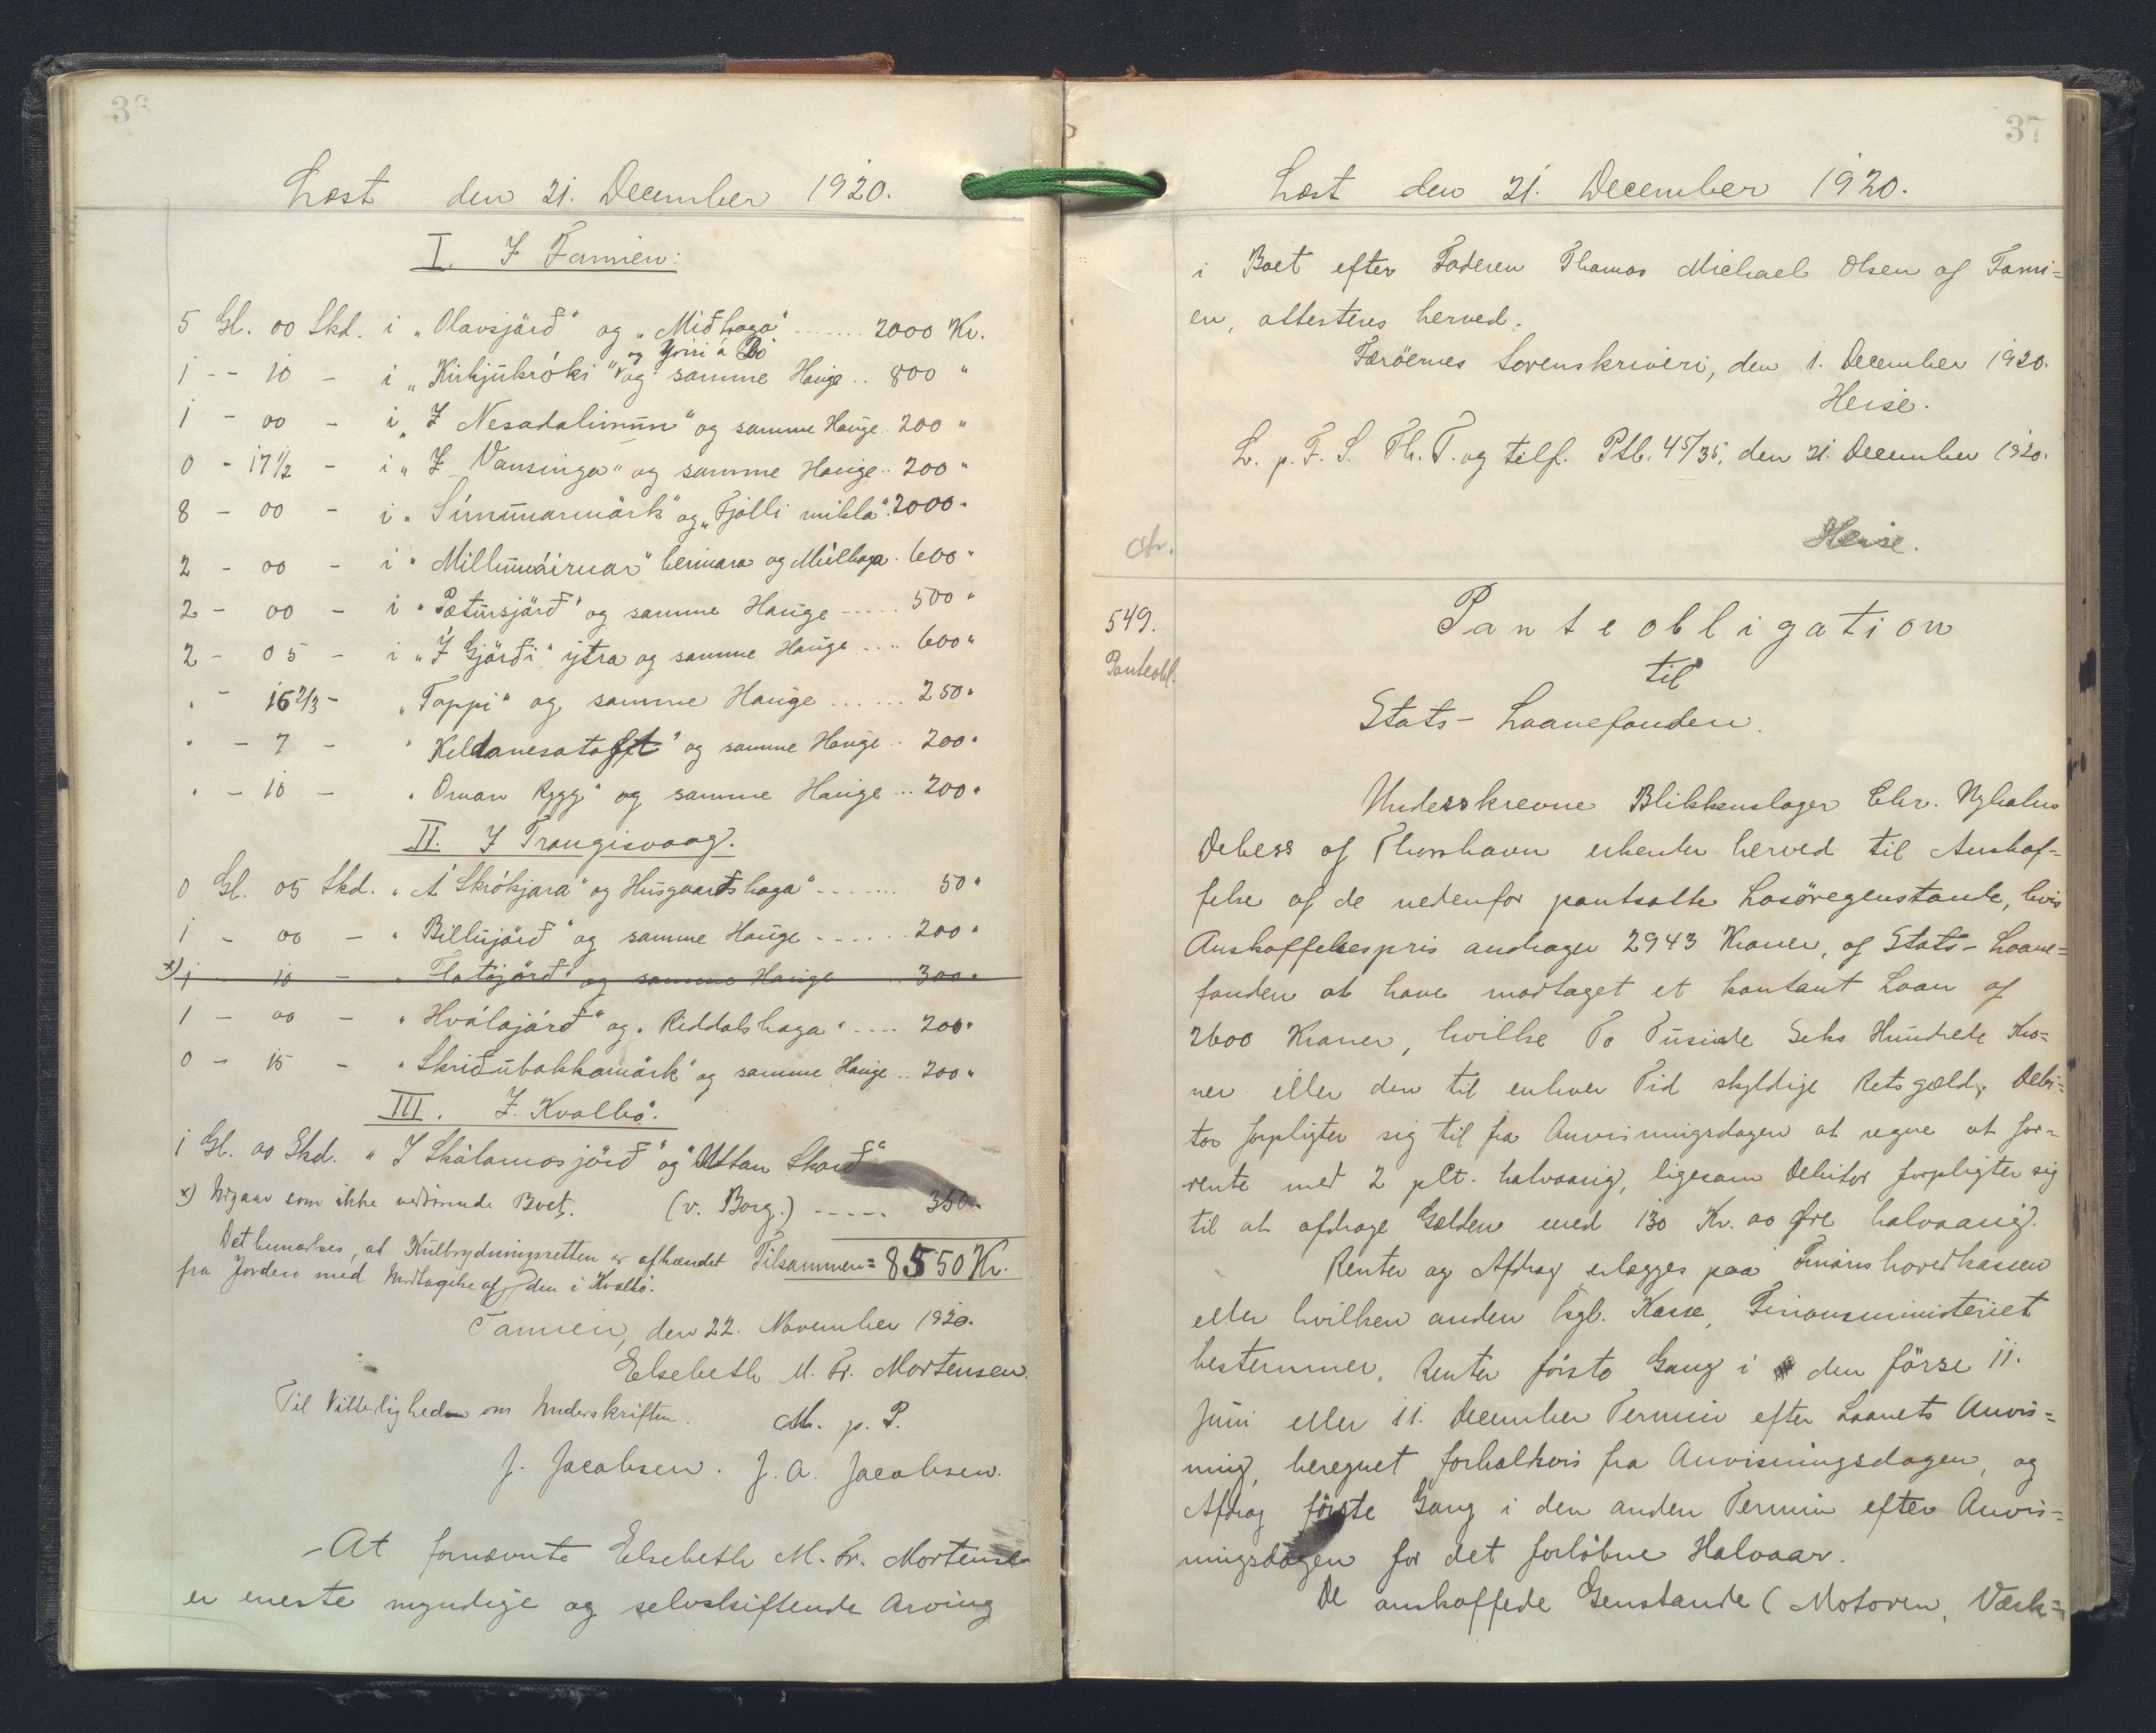 36
Læst den 21. December 1920.
I. I Famien:
5 Gl. 00 Skd. i „Olavsjärð“ og „Miðhaga“ ....... 2000 Kr.
og Yviri á Bö
1 - - 10 - i „Kirkjukróki“ og samme Hauge .. 800 "
1 - 00 - i „Í Nesadalinum“ og samme Hauge .. 200 "
0 - 17½ - i „Í Vansinga“ og samme Hauge .. 200 "
8 - 00 - i „Sunnanmärk“ og „Fjölli mikla“. 2000 "
2 - 00 - i „Millumáirnar“ hermara og Miðhaga . 600 "
2 - 00 - i „Pætursjärð“ og samme Hauge ..... 500 "
2 - 05 - i „Í Gjärði“ ytra og samme Hauge .... 600 "
" - 16 2/3 - „Toppi“ og samme Hauge ...... 250 "
" - 7 - " Keldanesatoft“ og samme Hauge .. 200 "
" - 10 - " Oman Rygg“ og samme Hauge ... 200 "
II. I Trangisvaag.
0 Gl. 05 Skd. „Á Skrókjara“ og Husgaardshaga“ ....... 50 "
1 - 00 - " Billujärð“ og samme Hauge ...... 200 "
x) 1 - 10 - " Flatojärð“ og samme Hauge .. 300 "
1 - 00 - " Hválajärð“ og „Riddalshaga“ .... 200 "
0 - 15 - " Skriðubakkamärk“ og samme Hauge .. 200 "
III. I Kvalbö.
1 Gl. 00 Skd. „Í Skálamosjörð“ og „Uttan Skarð“
x) Udgaar som ikke vedrörende Boet. (v. Borg.) ..... 350 "
Det bemærkes, at Kulbrydningsretten er afhændet Tilsammen = 8550 Kr.
fra Jorden med Undtagelse af den i Kvalbö.
Famien, den 22. November 1920.
Elsebeth M. Fr. Mortensen.
Til Vitterligheden om Underskriften. M. p. P.
J. Jacobsen. J. A. Jacobsen.
- At fornævnte Elsebeth M. Fr. Mortensen
er eneste myndige og selvskiftende Arving
37
Læst den 21. December 1920.
i Boet efter Faderen Thomas Michael Olsen af Fami=
en, attesteres herved.
Færöernes Sorenskriveri, den 1. December 1920.
Heise.
L. p. F. S. Th. T. og tilf. Ptb. 45/35, den 21. December 1920.
Heise.
549.
Panteobl.
Panteobligation
til
Stats-Laanefonden.
Underskrevne Blikkenslager Chr. Nyholm
Debess af Thorshavn erkender herved til Anskaf=
felse af de nedenfor pantsatte Løsøregenstande, hvis
Anskaffelsespris andrager 2943 Kroner, af Stats-Laane=
fonden at have modtaget et kontant Laan af
2600 Kroner, hvilke To Tusinde Seks Hundrede Kro=
ner eller den til enhver Tid skyldige Restgæld, Debi=
tor forpligter sig til fra Anvisningsdagen at regne at for=
rente med 2 pCt. halvaarig, ligesom Debitor forpligter sig
til at afdrage Gælden med 130 Kr. 00 Øre halvaarig.
Renter og Afdrag erlægges paa Finanshovedkassen
eller hvilken anden kgl. Kasse, Finansministeriet
bestemmer, Renter første Gang i den förse 11.
Juni eller 11. December Termin efter Laanets Anvis=
ning, beregnet forholdsvis fra Anvisningsdagen, og
Afdrag første Gang i den anden Termin efter Anvis=
ningsdagen for det forløbne Halvaar.
De anskaffede Genstande (Motoren, Værk=